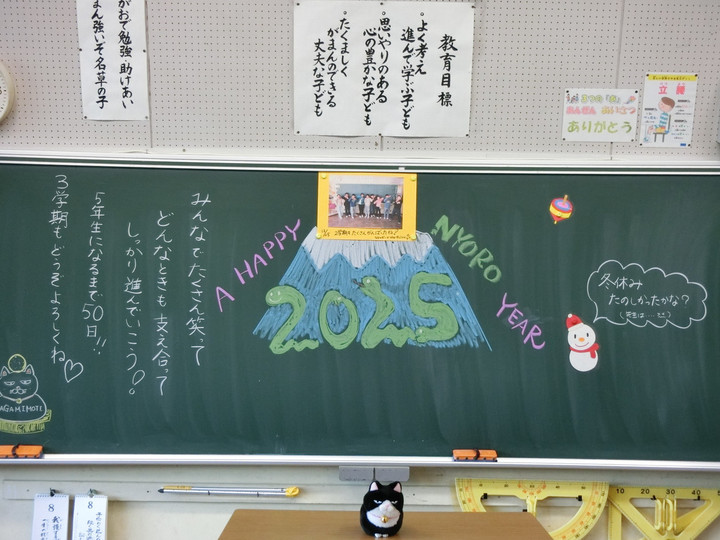 教育目標
・よく考え
進んで学ぶ子ども
・思いやりのある
心の豊かな子ども
・たくましく
がまんのできる
丈夫な子ども
おて勉強 助けあい
まん強いぞ名草の子
ありがとう
立腰
A HAPPY
NYORO
YEAR
2025
みんなでたくさん笑って
どんなときも支え合って
しっかり進んでいこう!
5年生になるまで50日!!
3学期もどうぞよろしくね♡
冬休み
たのしかったかな?
AGAMIMOTI
8
8
10 20 30 40